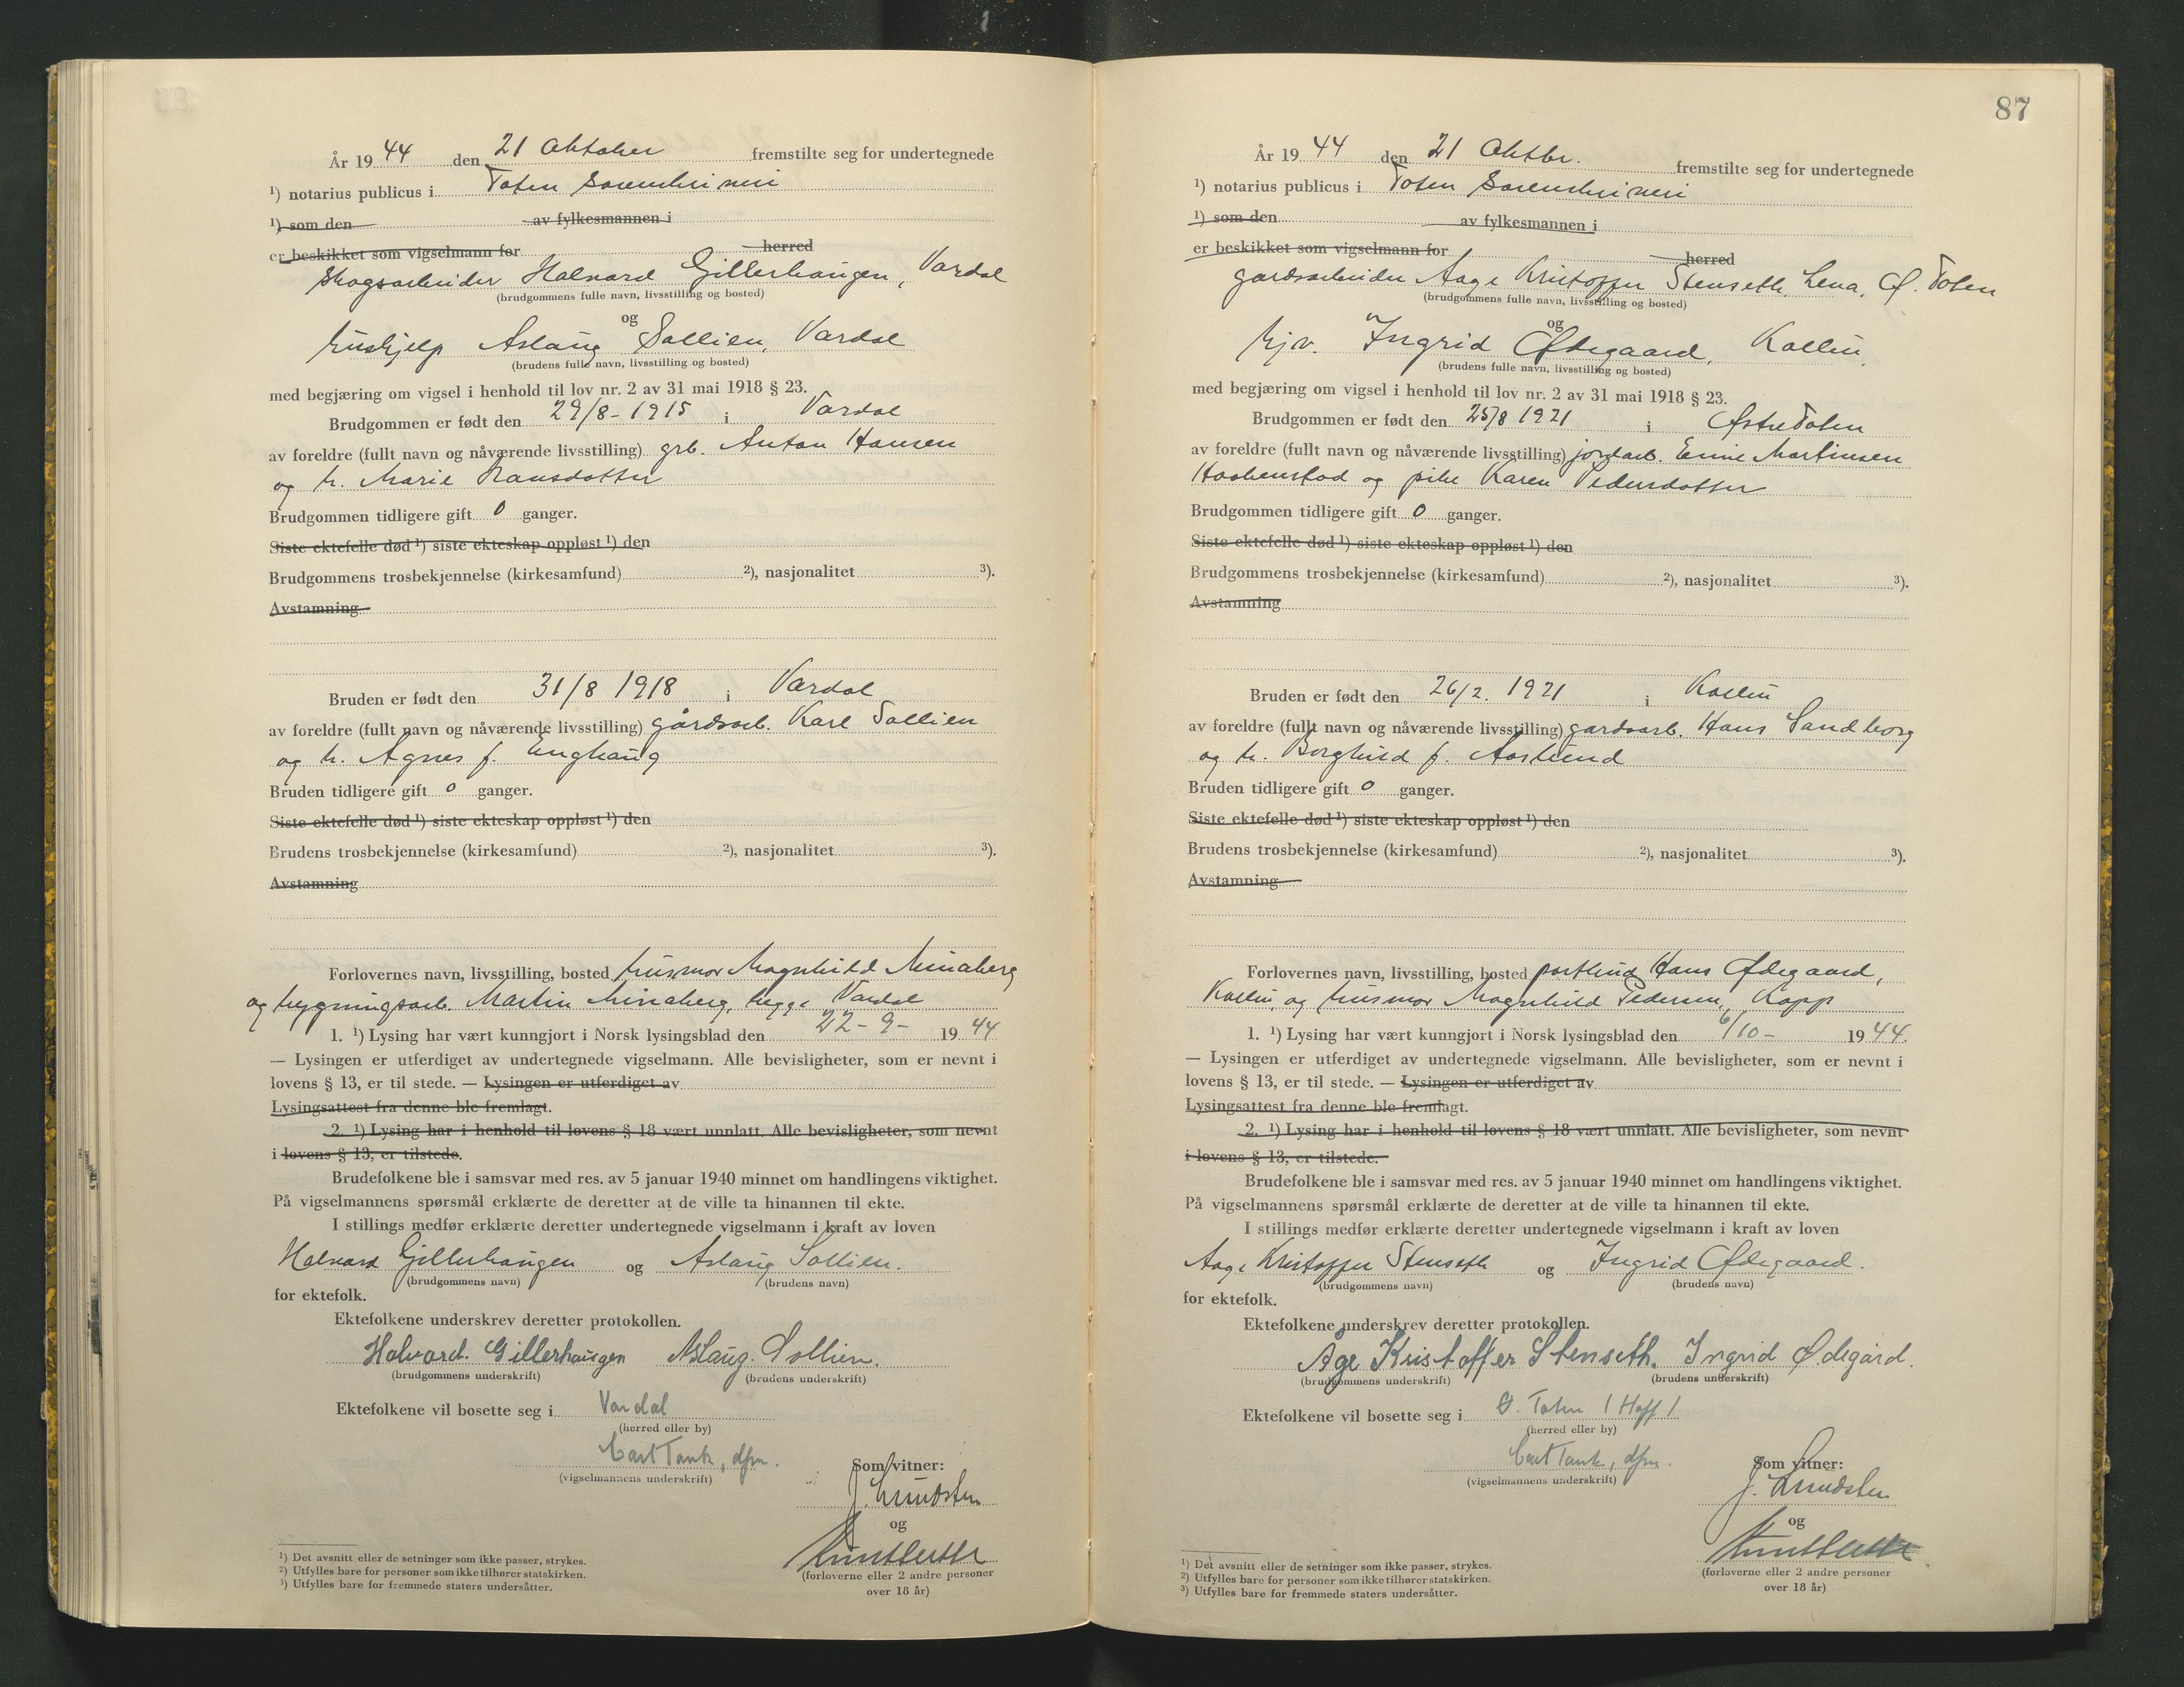 År 1944 den 21 Oktober fremstilte seg for undertegnede
¹) notarius publicus i Toten Sorenskriveri
¹) som den av fylkesmannen i
er beskikket som vigselmann for herred
skogsarbeider Halvard Gillerhaugen, Vardal
(brudgommens fulle navn, livsstilling og bosted)
og
hushjelp Aslaug Sollien, Vardal
(brudens fulle navn, livsstilling og bosted)
med begjæring om vigsel i henhold til lov nr. 2 av 31 mai 1918 § 23.
Brudgommen er født den 29/8-1915 i Vardal
av foreldre (fullt navn og nåværende livsstilling) grb. Anton Hansen
og h. Marie Hansdotter
Brudgommen tidligere gift 0 ganger.
Siste ektefelle død ¹) siste ekteskap oppløst ¹) den
Brudgommens trosbekjennelse (kirkesamfund) ²), nasjonalitet ³).
Avstamning
Bruden er født den 31/8 1918 i Vardal
av foreldre (fullt navn og nåværende livsstilling) gårdsarb. Karl Sollien
og h. Agnes f. Enghaug
Bruden tidligere gift 0 ganger.
Siste ektefelle død ¹) siste ekteskap oppløst ¹) den
Brudens trosbekjennelse (kirkesamfund) ²), nasjonalitet ³).
Avstamning
Forlovernes navn, livsstilling, bosted husmor Magnhild
og bygningsarb. Martin begge Vardal
1. ¹) Lysing har vært kunngjort i Norsk lysingsblad den 22-9- 1944
— Lysingen er utferdiget av undertegnede vigselmann. Alle bevisligheter, som er nevnt i
lovens § 13, er til stede. — Lysingen er utferdiget av
Lysingsattest fra denne ble fremlagt.
2. ¹) Lysing har i henhold til lovens § 18 vært unnlatt. Alle bevisligheter, som nevnt
i lovens § 13, er tilstede.
Brudefolkene ble i samsvar med res. av 5 januar 1940 minnet om handlingens viktighet.
På vigselmannens spørsmål erklærte de deretter at de ville ta hinannen til ekte.
I stillings medfør erklærte deretter undertegnede vigselmann i kraft av loven
Halvard Gillerhaugen og Aslaug Sollien.
(brudgommens navn) (brudens navn)
for ektefolk.
Ektefolkene underskrev deretter protokollen.
Halvard. Gillerhaugen Aslaug. Sollien.
(brudgommens underskrift) (brudens underskrift)
Ektefolkene vil bosette seg i Vardal
(herred eller by)
Carl Tank, dfm.
(vigselmannens underskrift)
Som vitner:
J. Lundsten
og
(forloverne eller 2 andre personer
over 18 år)
¹) Det avsnitt eller de setninger som ikke passer, strykes.
²) Utfylles bare for personer som ikke tilhører statskirken.
³) Utfylles bare for fremmede staters undersåtter.
87
År 1944 den 21 Oktbr. fremstilte seg for undertegnede
¹) notarius publicus i Toten Sorenskriveri
¹) som den av fylkesmannen i
er beskikket som vigselmann for herred
gardsarbeider Aage Kristoffer Stenseth, Lena, Ø. Toten
(brudgommens fulle navn, livsstilling og bosted)
og
hjv. Ingrid Ødegaard, Kolbu.
(brudens fulle navn, livsstilling og bosted)
med begjæring om vigsel i henhold til lov nr. 2 av 31 mai 1918 § 23.
Brudgommen er født den 25/8 1921 i Østre Toten
av foreldre (fullt navn og nåværende livsstilling) jordarb. Martinsen
Haakenstad og pike Karen Pedersdotter
Brudgommen tidligere gift 0 ganger.
Siste ektefelle død ¹) siste ekteskap oppløst ¹) den
Brudgommens trosbekjennelse (kirkesamfund) ²), nasjonalitet ³).
Avstamning
Bruden er født den 26/2. 1921 i Kolbu
av foreldre (fullt navn og nåværende livsstilling) gardsarb. Hans Sandborg
og h. Borghild f. Aaslund
Bruden tidligere gift 0 ganger.
Siste ektefelle død ¹) siste ekteskap oppløst ¹) den
Brudens trosbekjennelse (kirkesamfund) ²), nasjonalitet ³).
Avstamning
Forlovernes navn, livsstilling, bosted postbud Hans Ødegaard,
Kolbu, og husmor Magnhild Pedersen, Kapp
1. ¹) Lysing har vært kunngjort i Norsk lysingsblad den 6/10- 1944.
— Lysingen er utferdiget av undertegnede vigselmann. Alle bevisligheter, som er nevnt i
lovens § 13, er til stede. — Lysingen er utferdiget av
Lysingsattest fra denne ble fremlagt.
2. ¹) Lysing har i henhold til lovens § 18 vært unnlatt. Alle bevisligheter, som nevnt
i lovens § 13, er tilstede.
Brudefolkene ble i samsvar med res. av 5 januar 1940 minnet om handlingens viktighet.
På vigselmannens spørsmål erklærte de deretter at de ville ta hinannen til ekte.
I stillings medfør erklærte deretter undertegnede vigselmann i kraft av loven
Aage Kristoffer Stenseth og Ingrid Ødegaard.
(brudgommens navn) (brudens navn)
for ektefolk.
Ektefolkene underskrev deretter protokollen.
Åge Kristoffer Stenseth. Ingrid Ødegård.
(brudgommens underskrift) (brudens underskrift)
Ektefolkene vil bosette seg i Ø. Toten / Hoff /
(herred eller by)
Carl Tank, dfm.
(vigselmannens underskrift)
Som vitner:
J. Lundsten
og
(forloverne eller 2 andre personer
over 18 år)
¹) Det avsnitt eller de setninger som ikke passer, strykes.
²) Utfylles bare for personer som ikke tilhører statskirken.
³) Utfylles bare for fremmede staters undersåtter.